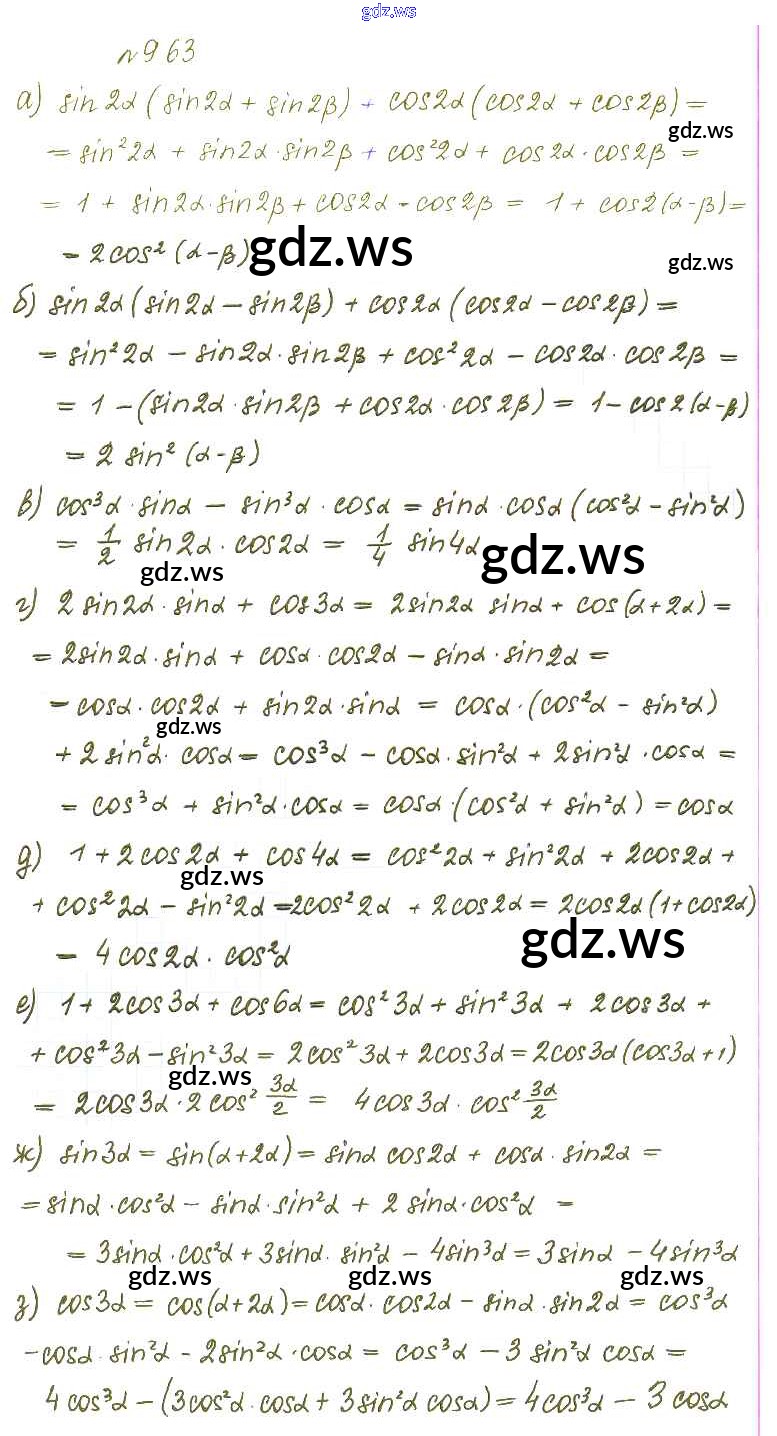 gdz.ws
№963
а) sin2α(sin2α + sin2β) + cos2α(cos2α + cos2β) =
gdz.ws
= sin²2α + sin2α·sin2β + cos²2α + cos2α·cos2β =
= 1 + sin2α·sin2β + cos2α·cos2β = 1 + cos2(α-β) =
= 2cos²(α-β) gdz.ws gdz.ws
б) sin2α(sin2α - sin2β) + cos2α(cos2α - cos2β) =
= sin²2α - sin2α·sin2β + cos²2α - cos2α·cos2β =
= 1 - (sin2α·sin2β + cos2α·cos2β) = 1 - cos2(α-β)
= 2 sin²(α-β)
в) cos³α·sinα - sin³α·cosα = sinα·cosα(cos²α - sin²α)
= 1/2 sin2α·cos2α = 1/4 sin4α gdz.ws
gdz.ws
г) 2sin2α·sinα + cos3α = 2sin2α sinα + cos(α+2α) =
= 2sin2α·sinα + cosα·cos2α - sinα·sin2α =
- cosα·cos2α + sin2α·sinα = cosα·(cos²α - sin²α)
gdz.ws
+ 2sin²α·cosα = cos³α - cosα·sin²α + 2sin²α·cosα =
= cos³α + sin²α·cosα = cosα·(cos²α + sin²α) = cosα
д) 1 + 2cos2α + cos4α = cos²2α + sin²2α + 2cos2α +
gdz.ws
+ cos²2α - sin²2α = 2cos²2α + 2cos2α = 2cos2α(1+cos2α)
- 4cos2α·cos²α gdz.ws
е) 1 + 2cos3α + cos6α = cos²3α + sin²3α + 2cos3α +
+ cos²3α - sin²3α = 2cos²3α + 2cos3α = 2cos3α(cos3α+1)
gdz.ws
= 2cos3α·2cos² 3α/2 = 4cos3α·cos² 3α/2
ж) sin3α = sin(α+2α) = sinα cos2α + cosα·sin2α =
= sinα·cos²α - sinα·sin²α + 2sinα·cos²α -
= 3sinα·cos²α + 3sinα·sin²α - 4sin³α = 3sinα - 4sin³α
gdz.ws gdz.ws gdz.ws
з) cos3α = cos(α+2α) = cosα·cos2α - sinα·sin2α = cos³α
- cosα·sin²α - 2sin²α·cosα = cos³α - 3sin²α cosα =
4cos³α - (3cos²α·cosα + 3sin²α cosα) = 4cos³α - 3cosα